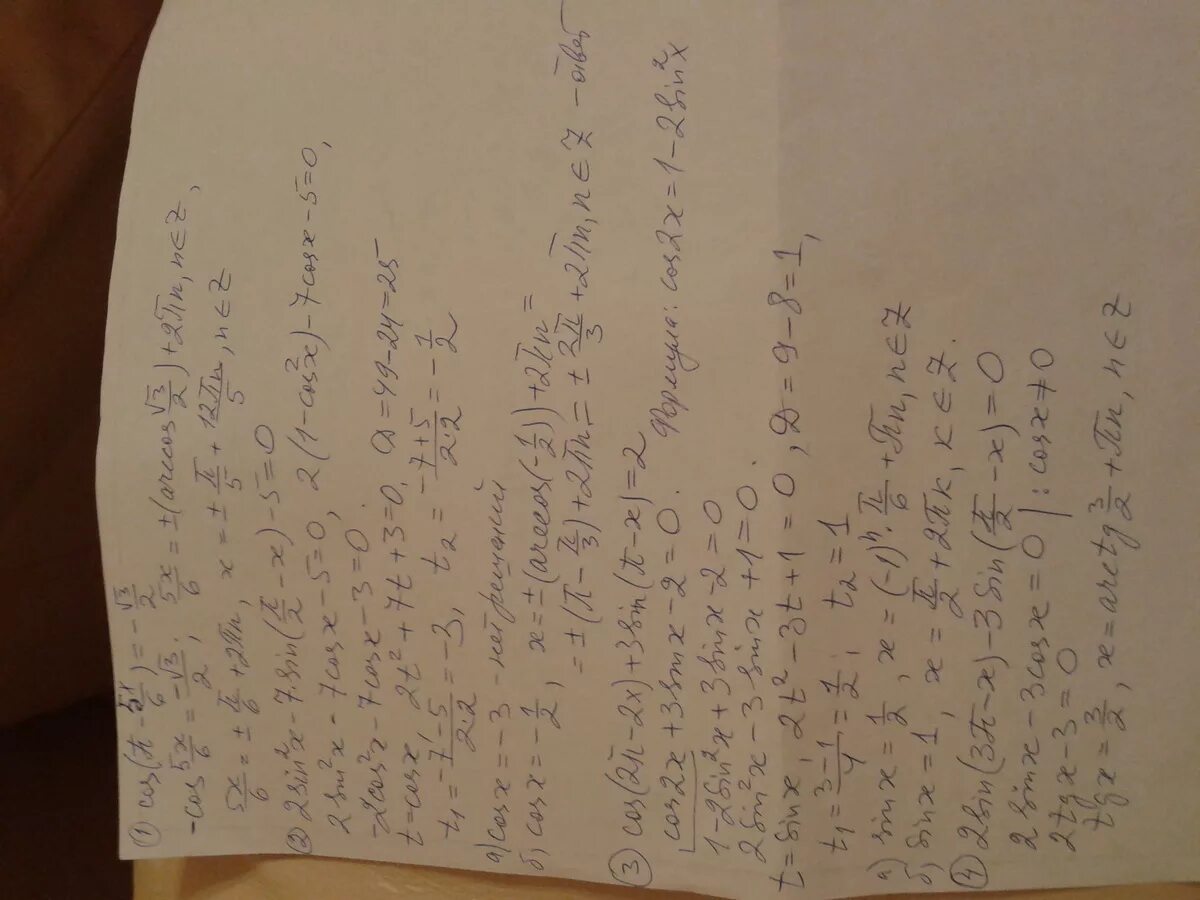 ① cos(π - 5x/6) = -√3/2
-cos 5x/6 = -√3/2; 5x/6 = ±(arccos √3/2) + 2πn, n∈Z,
5x/6 = ± π/6 + 2πn, x = ± π/5 + 12πn/5, n∈Z
② 2sin²x - 7·sin(π/2 - x) - 5 = 0
2sin²x - 7cosx - 5 = 0, 2(1-cos²x) - 7cosx - 5 = 0,
-2cos²x - 7cosx - 3 = 0.
t = cosx 2t² + 7t + 3 = 0, D = 49 - 24 = 25
t₁ = (-7-5)/(2·2) = -3, t₂ = (-7+5)/(2·2) = -1/2
а) cosx = -3 - нет решений
б) cosx = -1/2, x = ±(arccos(-1/2)) + 2πn =
= ±(π - π/3) + 2πn = ± 2π/3 + 2πn, n∈Z - ответ
③ cos(2π - 2x) + 3sin(π - x) = 2
cos2x + 3sinx - 2 = 0. Формула: cos2x = 1 - 2sin²x
1 - 2sin²x + 3sinx - 2 = 0
2sin²x - 3sinx + 1 = 0.
t = sinx, 2t² - 3t + 1 = 0, D = 9 - 8 = 1,
t₁ = (3-1)/4 = 1/2; t₂ = 1
а) sinx = 1/2, x = (-1)ⁿ·π/6 + πn, n∈Z
б) sinx = 1, x = π/2 + 2πк, к∈Z.
④ 2sin(3π - x) - 3sin(π/2 - x) = 0
2sinx - 3cosx = 0 | : cosx ≠ 0
2tgx - 3 = 0
tgx = 3/2, x = arctg 3/2 + πn, n∈Z